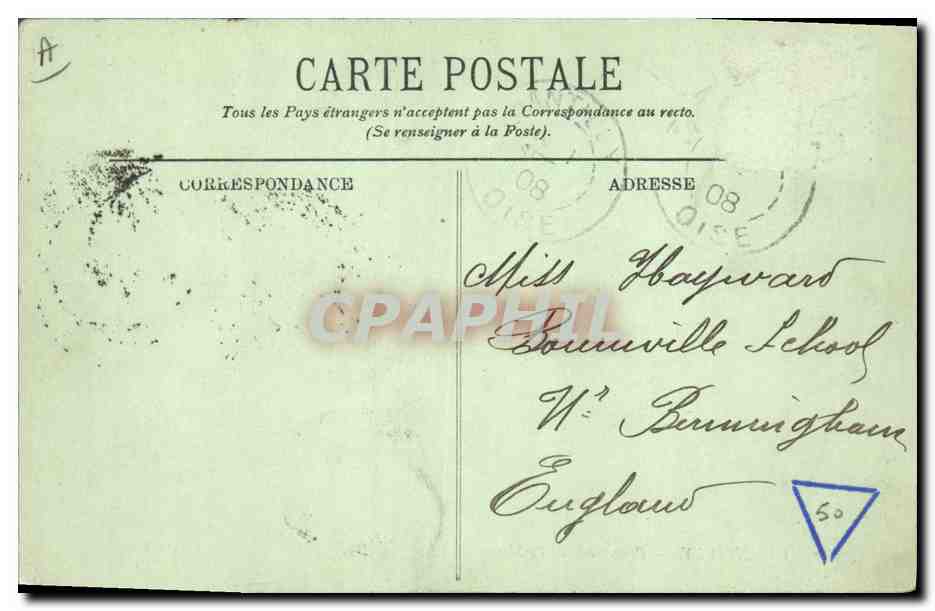 A
CARTE POSTALE
Tous les Pays étrangers n'acceptent pas la Correspondance au recto.
(Se renseigner à la Poste).
CORRESPONDANCE
ADRESSE
08
OISE
08
OISE
CPAPHIL
Miss Hayward
Bournville School
Nr Birmingham
England
50